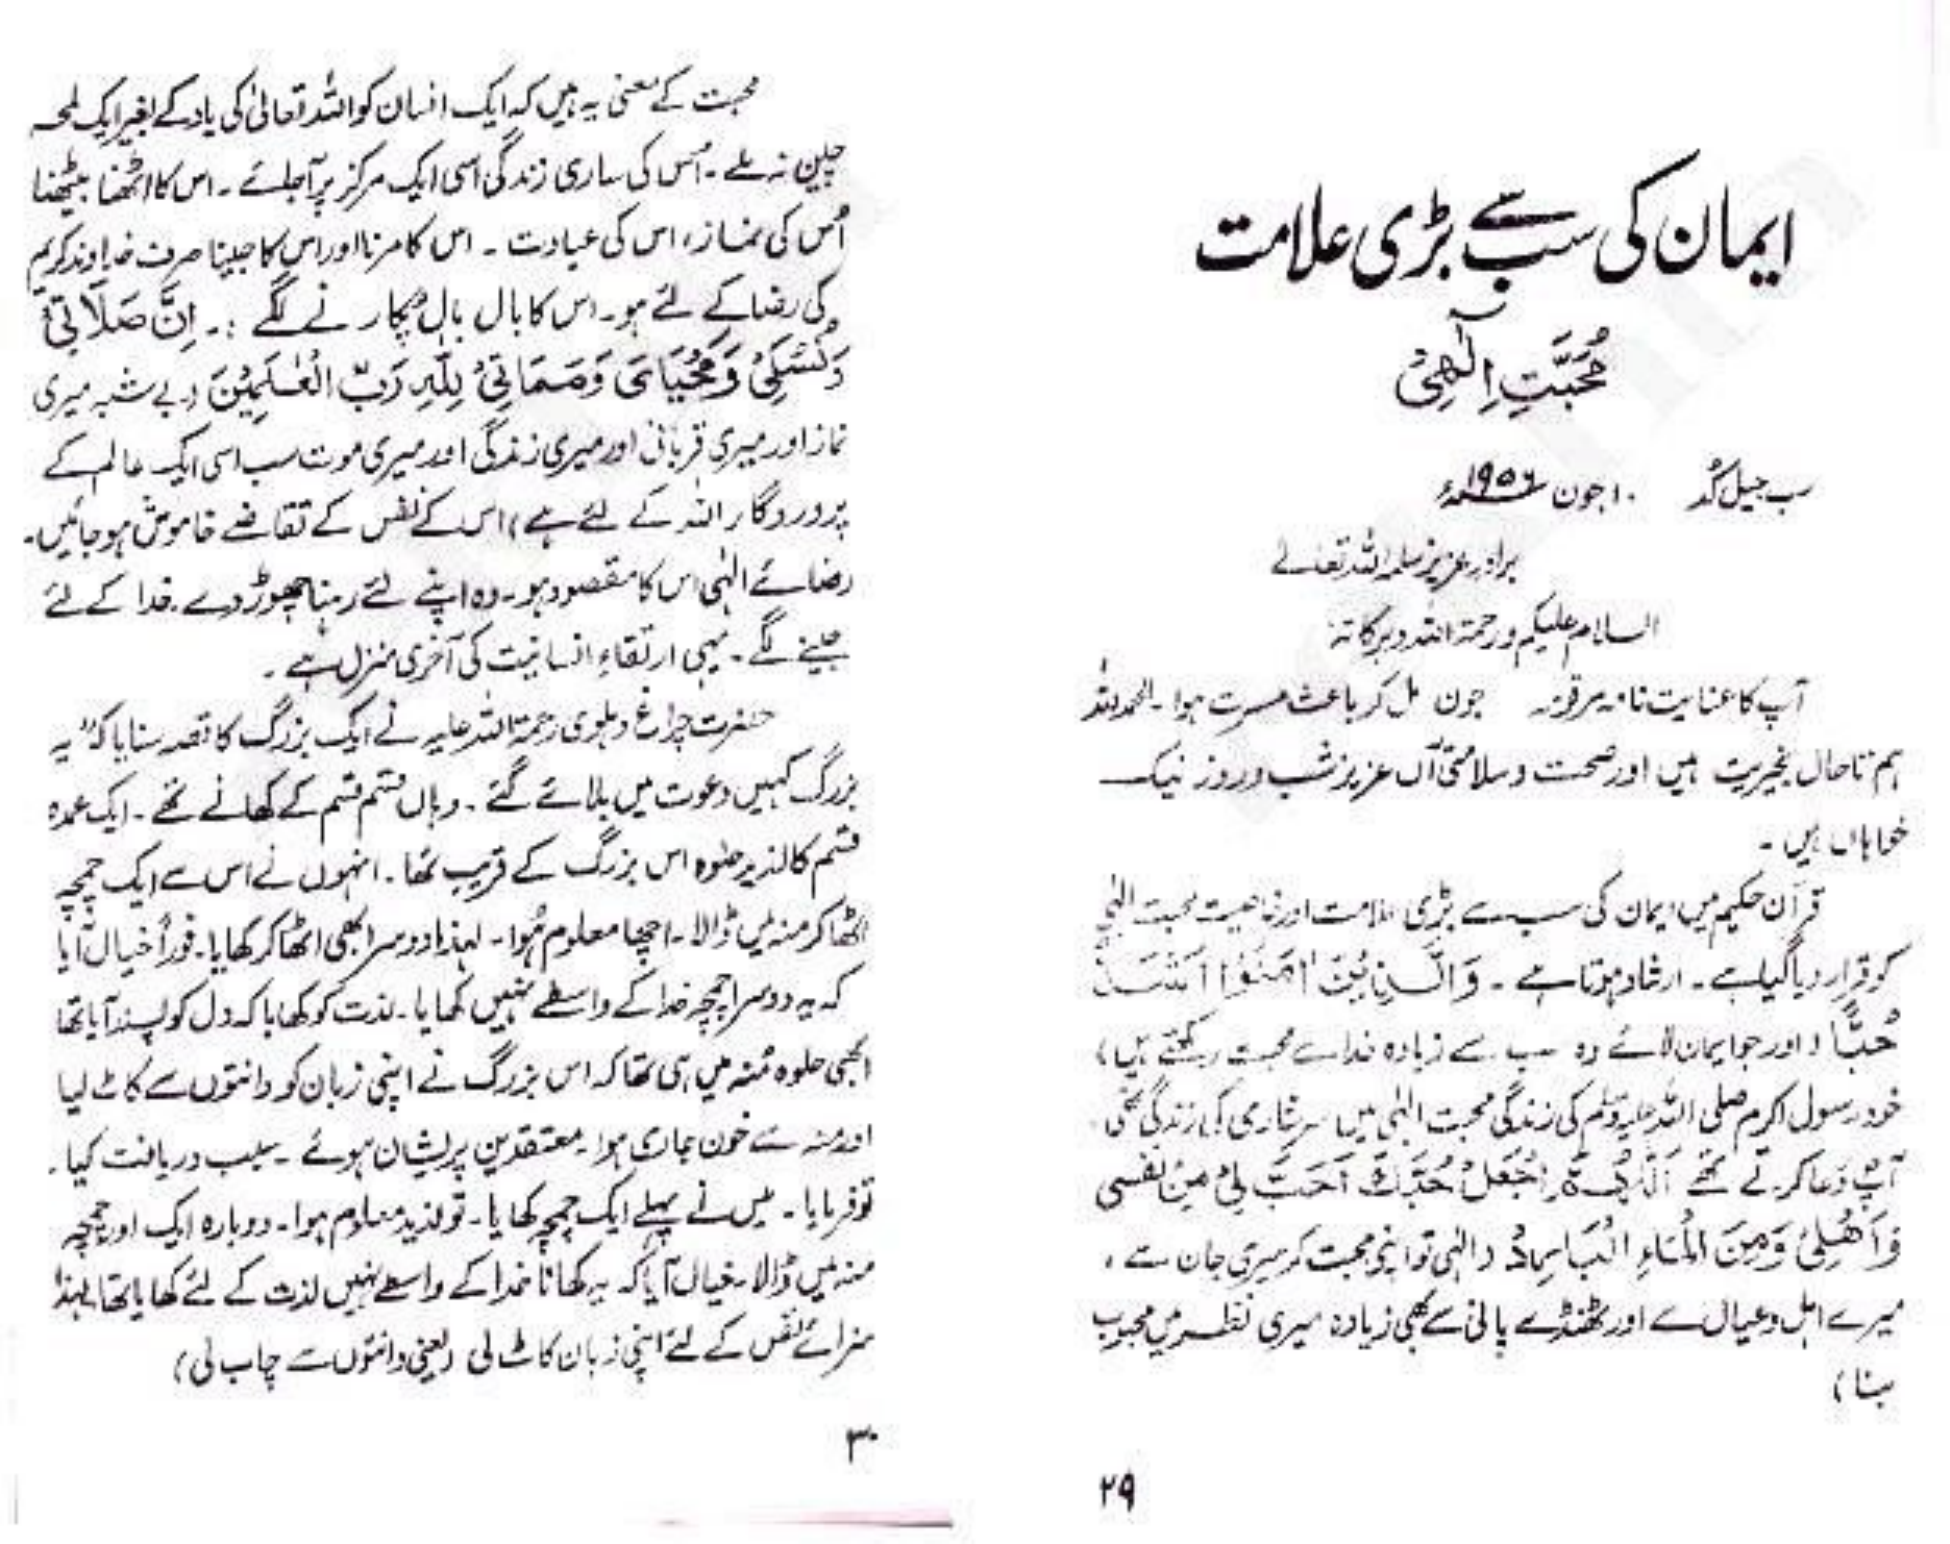 ایمان کی سب سے بڑی علامت
مُحبَّتِ اِلٰھِیْ
سب جیل کُڈ ۱۰ جون ۱۹۵۶ء
برادر عزیز سلمہ اللہ تعالےٰ
السلام علیکم ورحمۃ اللہ وبرکاتہٗ
آپ کا عنایت نامہ مرقومہ جون مل کر باعث مسرت ہوا ۔ الحمد للہ
ہم تاحال بخیریت ہیں اور صحت و سلامتی آں عزیز شب و روز نیک
خواہاں ہیں ۔
قرآن حکیم میں ایمان کی سب سے بڑی علامت اور خاصیت محبت الٰہی
کو قرار دیا گیا ہے ۔ ارشاد ہوتا ہے ۔ وَالَّذِیْنَ اٰمَنُوْا اَشَدُّ
حُبًّا (اور جو ایمان لائے وہ سب سے زیادہ خدا سے محبت رکھتے ہیں)
خود رسول اکرم صلی اللہ علیہ وسلم کی زندگی محبت الٰہی میں سرشاری کی زندگی تھی
آپؐ دُعا کرتے تھے اَللّٰھُمَّ اجْعَلْ حُبَّكَ اَحَبَّ اِلَیَّ مِنْ نَفْسِی
وَاَھْلِیْ وَمِنَ الْمَاءِ الْبَارِدْ (الٰہی تو اپنی محبت کو میری جان سے ،
میرے اہل و عیال سے اور ٹھنڈے پانی سے بھی زیادہ میری نظر میں محبوب
بنا)
۲۹
محبت کے معنی یہ ہیں کہ ایک انسان کو اللہ تعالیٰ کی یاد کے بغیر ایک لمحہ
چین نہ ملے ۔ اُس کی ساری زندگی اسی ایک مرکز پر آجائے ۔ اس کا اٹھنا بیٹھنا
اُس کی نماز ، اس کی عبادت ۔ اس کا مرنا اور اس کا جینا صرف خداوند کریم
کی رضا کے لئے ہو ۔ اس کا بال بال پکارنے لگے :۔ اِنَّ صَلَاتِیْ
وَنُسُکِیْ وَمَحْیَایَ وَمَمَاتِیْ لِلّٰہِ رَبِّ الْعٰلَمِیْنَ (بے شبہ میری
نماز اور میری قربانی اور میری زندگی اور میری موت سب اسی ایک عالم کے
پروردگار اللہ کے لئے ہے) اس کے نفس کے تقاضے خاموش ہو جائیں ۔
رضائے الٰہی اس کا مقصود ہو ۔ وہ اپنے لئے رہنا چھوڑ دے ۔ خدا کے لئے
جینے لگے ۔ یہی ارتقاءِ انسانیت کی آخری منزل ہے ۔
حضرت چراغ دہلوی رحمۃ اللہ علیہ نے ایک بزرگ کا قصہ سنایا کہ " یہ
بزرگ کہیں دعوت میں بلائے گئے ۔ وہاں قسم قسم کے کھانے تھے ۔ ایک عمدہ
قسم کا لذیذ حلوہ اس بزرگ کے قریب تھا ۔ انہوں نے اس سے ایک چمچہ
اٹھا کر منہ میں ڈالا ۔ اچھا معلوم ہُوا ۔ لہذا دوسرا بھی اٹھا کر کھایا ۔ فوراً خیال آیا
کہ یہ دوسرا چمچہ خدا کے واسطے نہیں کھایا ۔ لذت کو کھایا کہ دل کو پسند آیا تھا
ابھی حلوہ مُنہ میں ہی تھا کہ اس بزرگ نے اپنی زبان کو دانتوں سے کاٹ لیا
اور منہ سے خون جاری ہوا ۔ معتقدین پریشان ہوئے ۔ سبب دریافت کیا ۔
تو فرمایا ۔ میں نے پہلے ایک چمچہ کھایا ۔ تو لذیذ معلوم ہوا ۔ دوبارہ ایک اور چمچہ
منہ میں ڈالا ۔ خیال آیا کہ یہ کھانا خدا کے واسطے نہیں لذت کے لئے کھایا تھا لہذا
سزائے نفس کے لئے اپنی زبان کاٹ لی (یعنی دانتوں سے چاب لی)
۳۰